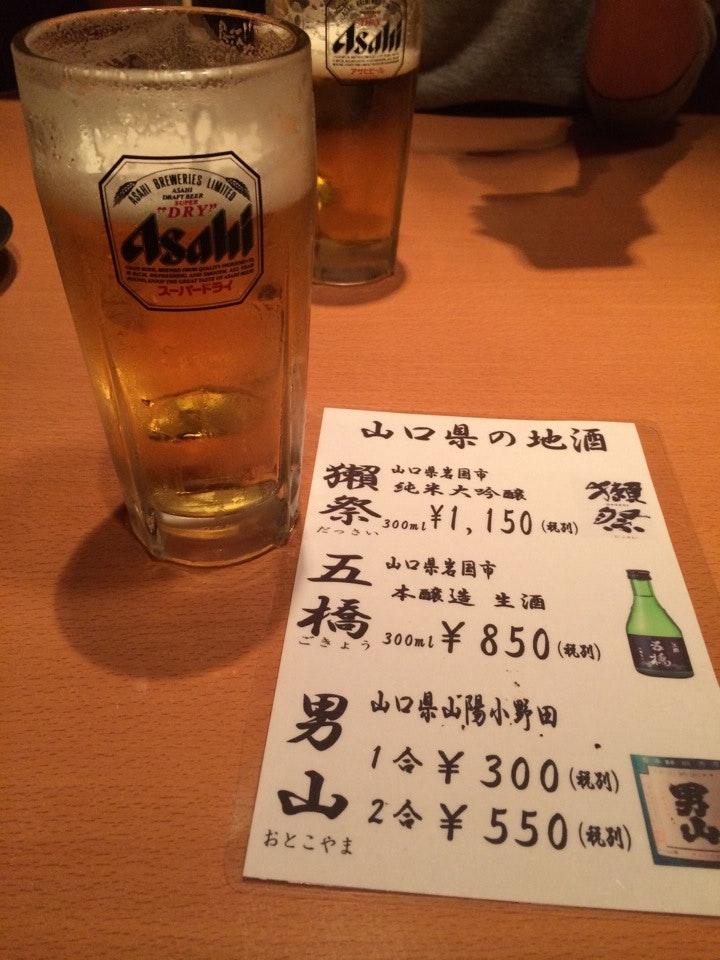 Asahi
アサヒビール
ASAHI BREWERIES LIMITED
ASAHI
DRAFT BEER
SUPER
"DRY"
Asahi
スーパードライ
山口県の地酒
獺祭
だっさい
山口県岩国市
純米大吟醸
300ml ¥1,150(税別)
獺祭
五橋
ごきょう
山口県岩国市
本醸造 生酒
300ml ¥850(税別)
五橋
男山
おとこやま
山口県山陽小野田
1合 ¥300(税別)
2合 ¥550(税別)
男山